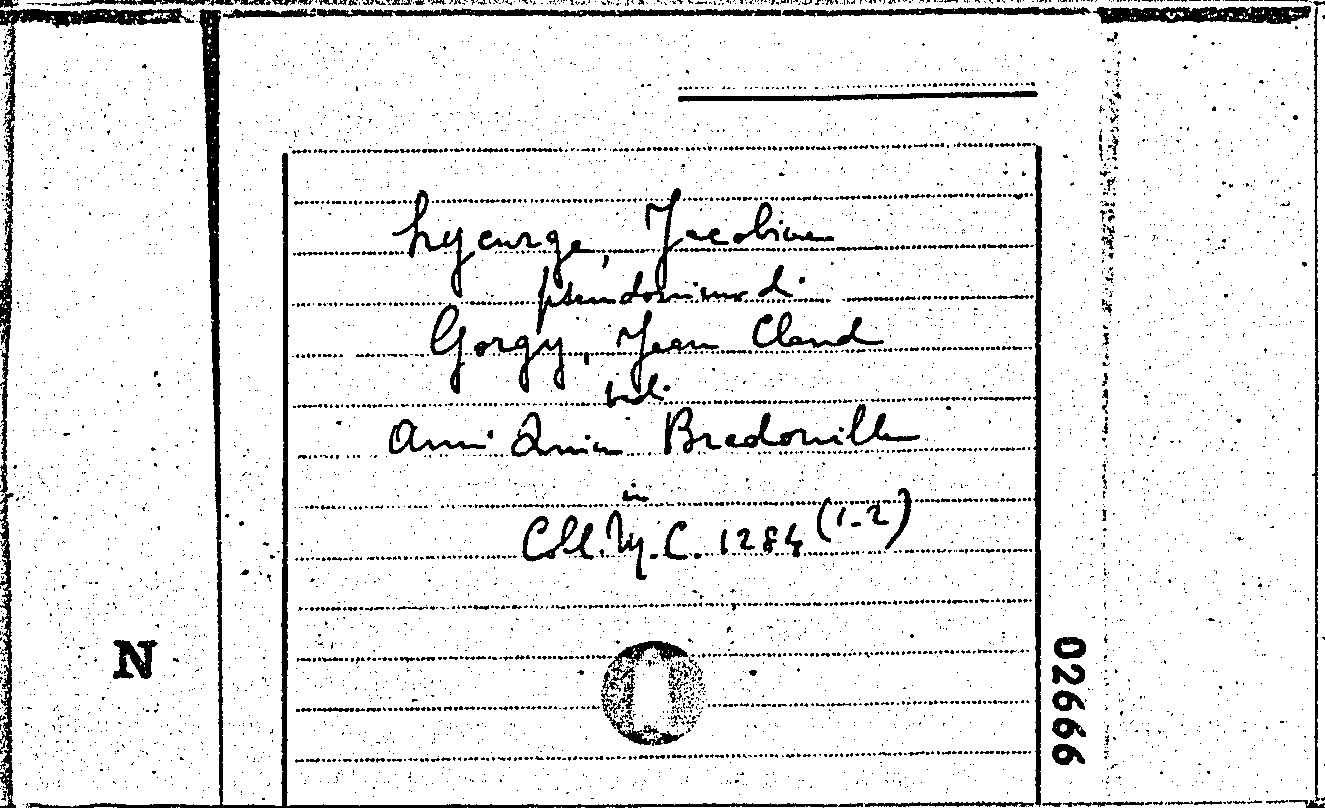 Lycurge, Jacobin
pseudonimo di
Gorgy, Jean Claud
vedi
Ann' Quin Bredouille
in
Coll. M. C. 1284 (1-2)
N
02666